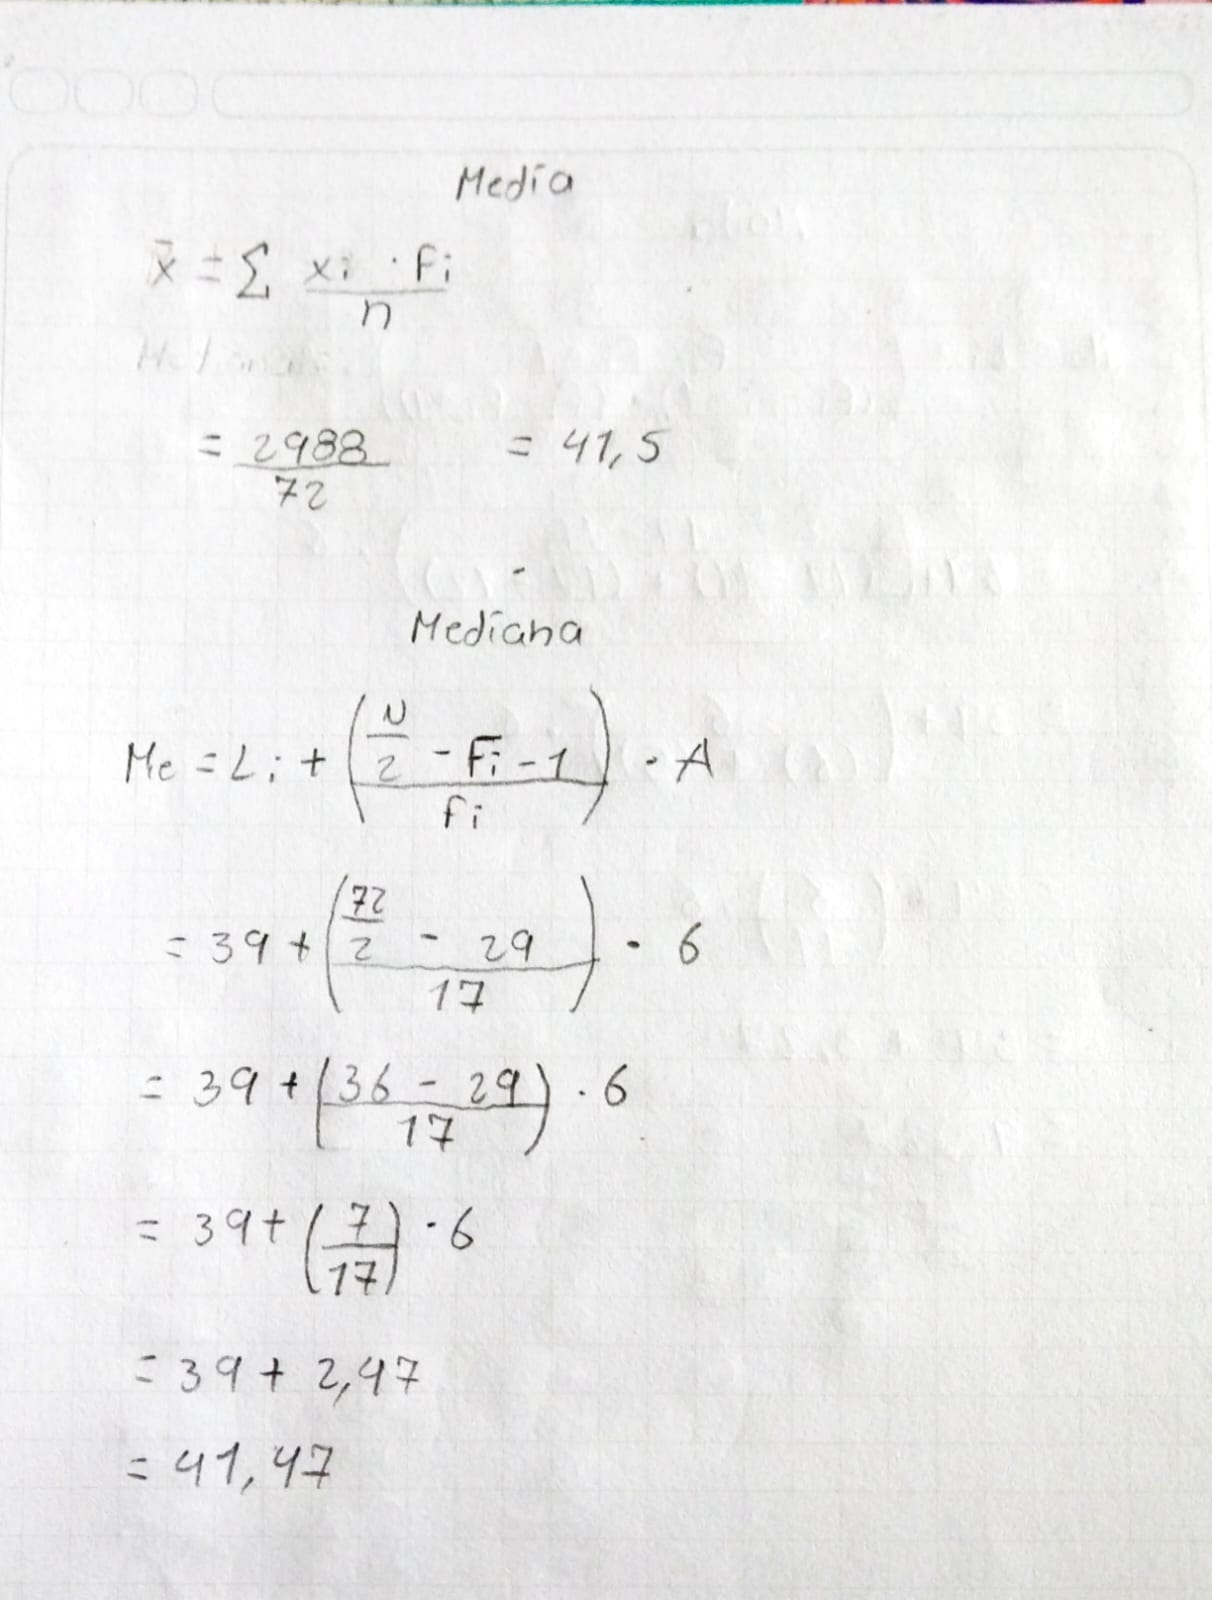 Media
x̄ = Σ xi · fi / n
= 2988 / 72 = 41,5
Mediana
Me = Li + ( N/2 - Fi - 1 / fi ) · A
= 39 + ( 72/2 - 29 / 17 ) · 6
= 39 + ( 36 - 29 / 17 ) · 6
= 39 + ( 7 / 17 ) · 6
= 39 + 2,47
= 41,47